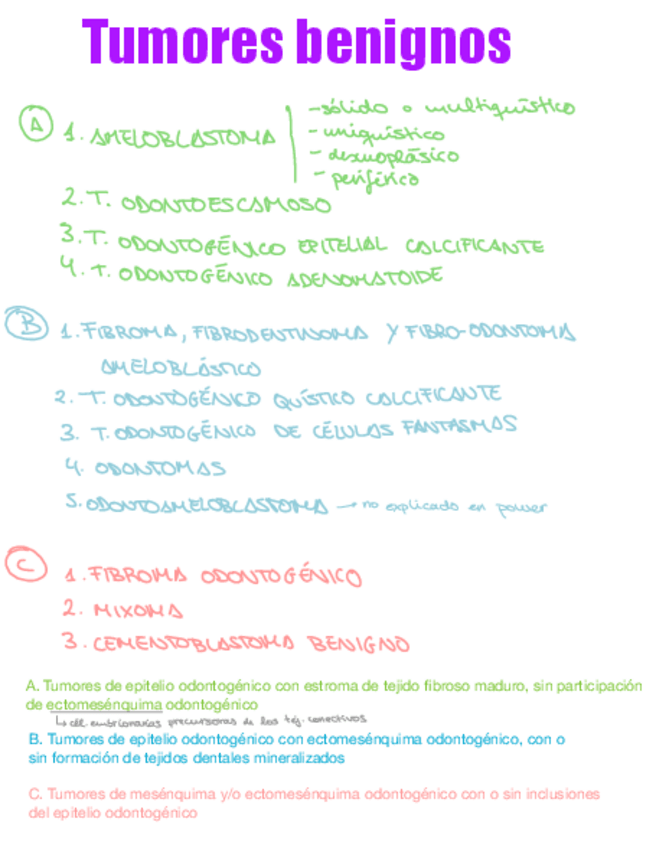 Tumores benignos
A 1. AMELOBLASTOMA
- sólido o multiquístico
- uniquístico
- desmoplásico
- periférico
2. T. ODONTOESCAMOSO
3. T. ODONTOGÉNICO EPITELIAL CALCIFICANTE
4. T. ODONTOGÉNICO ADENOMATOIDE
B 1. FIBROMA, FIBRODENTINOMA Y FIBRO-ODONTOMA
AMELOBLÁSTICO
2. T. ODONTOGÉNICO QUÍSTICO CALCIFICANTE
3. T. ODONTOGÉNICO DE CÉLULAS FANTASMAS
4. ODONTOMAS
5. ODONTOAMELOBLASTOMA → no explicado en power
C 1. FIBROMA ODONTOGÉNICO
2. MIXOMA
3. CEMENTOBLASTOMA BENIGNO
A. Tumores de epitelio odontogénico con estroma de tejido fibroso maduro, sin participación
de ectomesénquima odontogénico
↳ cél. embrionarias precursoras de los tej. conectivos
B. Tumores de epitelio odontogénico con ectomesénquima odontogénico, con o
sin formación de tejidos dentales mineralizados
C. Tumores de mesénquima y/o ectomesénquima odontogénico con o sin inclusiones
del epitelio odontogénico